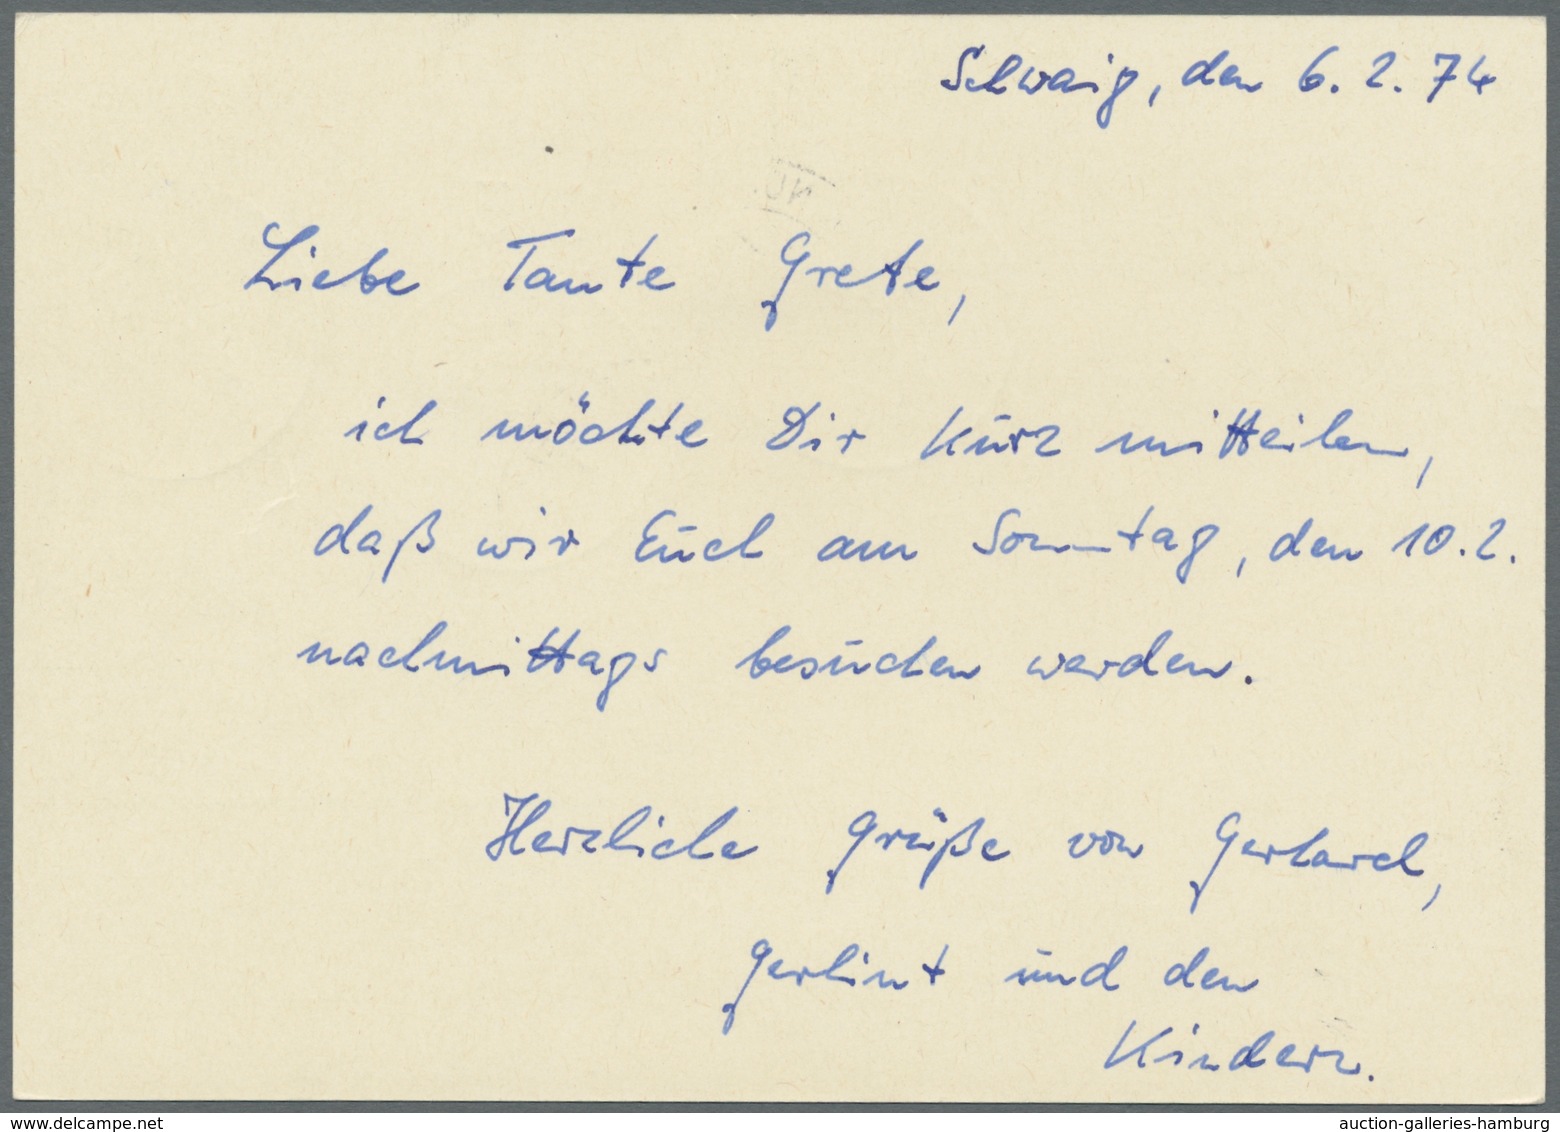 Schwaig, den 6.2.74
Liebe Tante Grete,
ich möchte Dir kurz mitteilen,
daß wir Euch am Sonntag, den 10.2.
nachmittags besuchen werden.
Herzliche Grüße von Gerhard,
Gerlint und den
Kindern.
www.delcampe.net
auction-galleries-hamburg